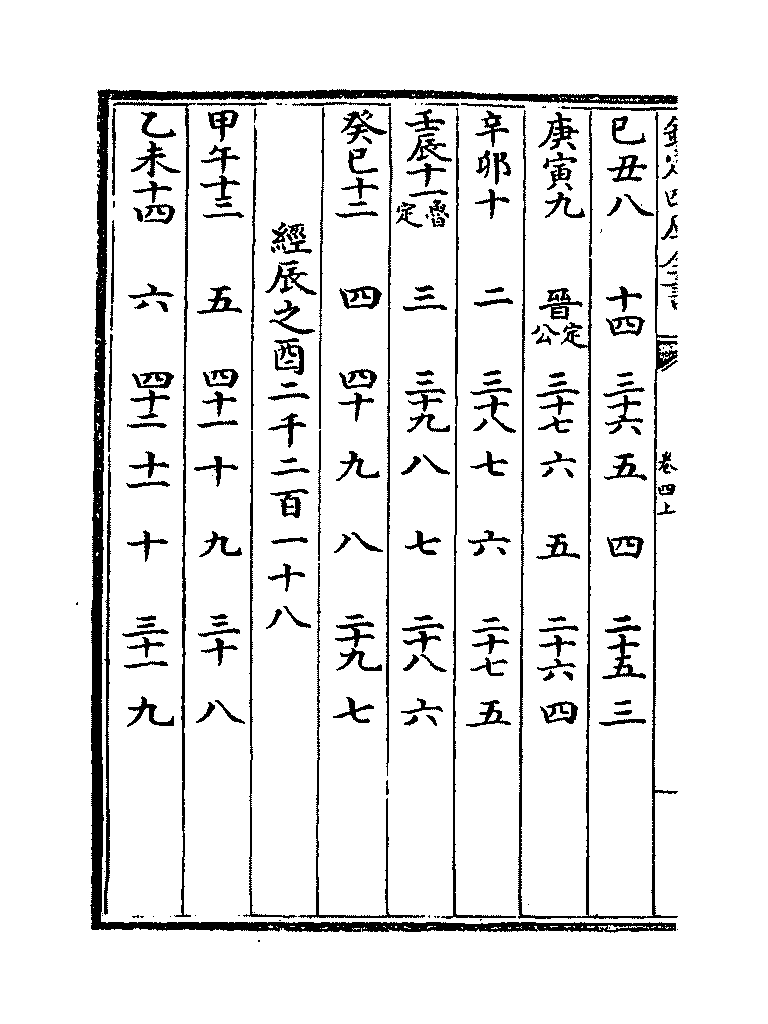 欽定四庫全書
卷四上
己丑八 十四 三十六 五 四 二十五 三
庚寅九 晉定公 三十七 六 五 二十六 四
辛卯十 二 三十八 七 六 二十七 五
壬辰十一魯定 三 三十九 八 七 二十八 六
癸巳十二 四 四十 九 八 二十九 七
經辰之酉二千二百一十八
甲午十三 五 四十一 十 九 三十 八
乙未十四 六 四十二 十一 十 三十一 九